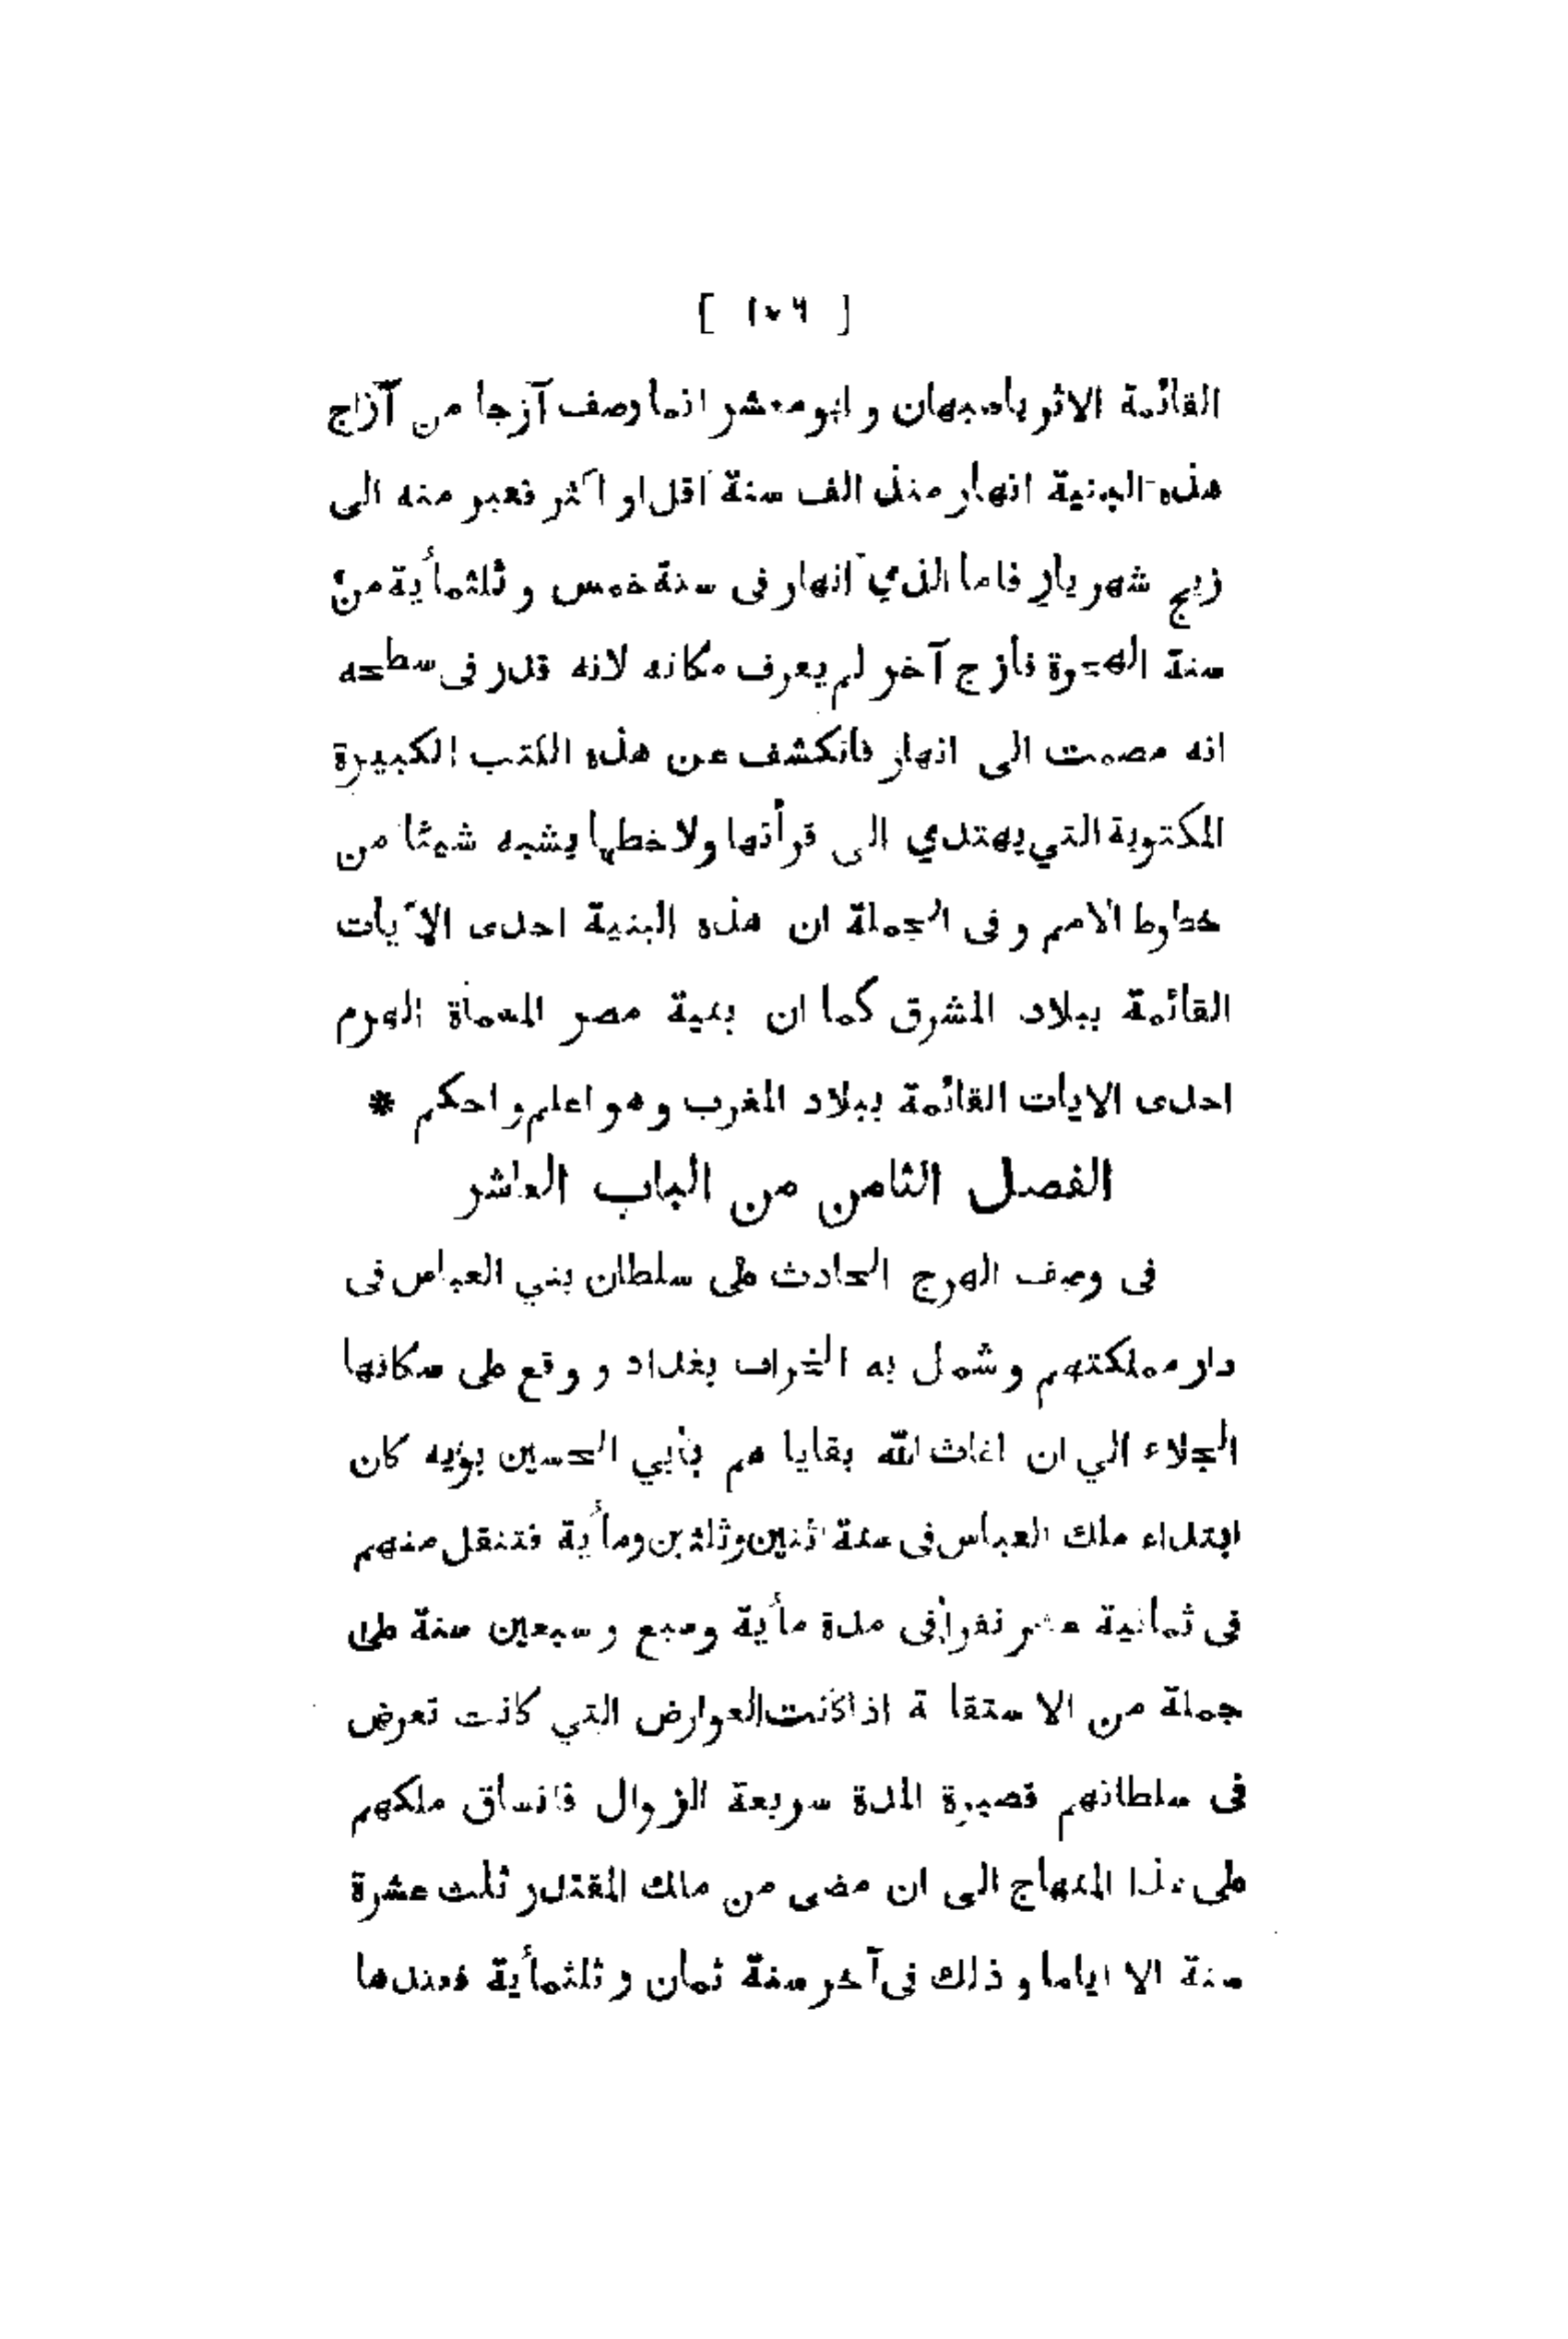 [ ١٥٦ ]
القائمة الاثر باصبهان و ابو معشر انما وصف آزجا من آزاج
هذه البنية انهار منذ الف سنة اقل او اكثر فعبر منه الى
زيج شهريار فاما الذي انهار فى سنة خمس و ثلثمأية من
سنة الهجرة فأزج آخر لم يعرف مكانه لانه قدر فى سطحه
انه مصمت الى انهار فانكشف عن هذه الكتب الكبيرة
المكتوبة التي يهتدي الى قرأتها ولا خطها يشبه شيئا من
خطوط الامم و فى الجملة ان هذه البنية احدى الآيات
القائمة ببلاد المشرق كما ان بنية مصر المسماة الهرم
احدى الايات القائمة ببلاد المغرب و هو اعلم و احكم *
الفصل الثامن من الباب العاشر
فى وصف الهرج الحادث على سلطان بني العباس فى
دار مملكتهم و شمل به الخراب بغداد و وقع على سكانها
الجلاء الي ان اغاث الله بقايا هم بأبي الحسين بويه كان
ابتداء ملك العباس فى سنة اثنين وثلثين ومأية فتنقل منهم
فى ثمانية عشر نفرا فى مدة مأية وسبع و سبعين سنة على
جملة من الا ستقا ة اذا كانت العوارض التي كانت تعرض
فى سلطانهم قصيرة المدة سريعة الزوال فانساق ملكهم
على هذا المنهاج الى ان مضى من ملك المقتدر ثلث عشرة
سنة الا اياما و ذلك فى آخر سنة ثمان و ثلثمأية فعندها